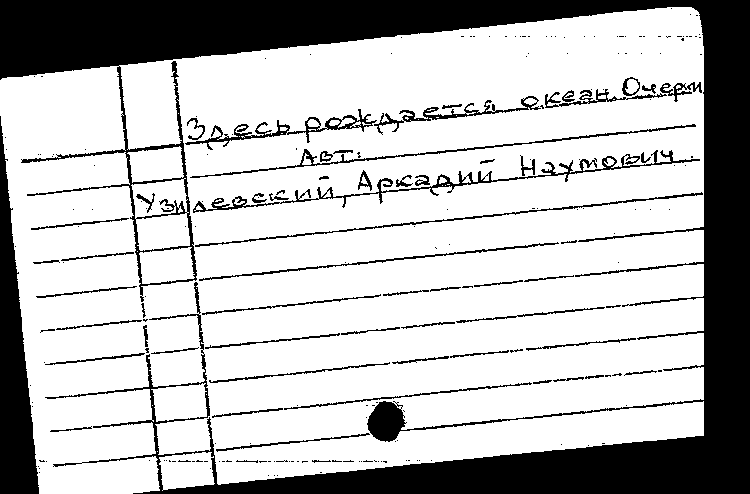 Здесь рождается океан. Очерки
Авт.:
Узилевский, Аркадий Наумович.